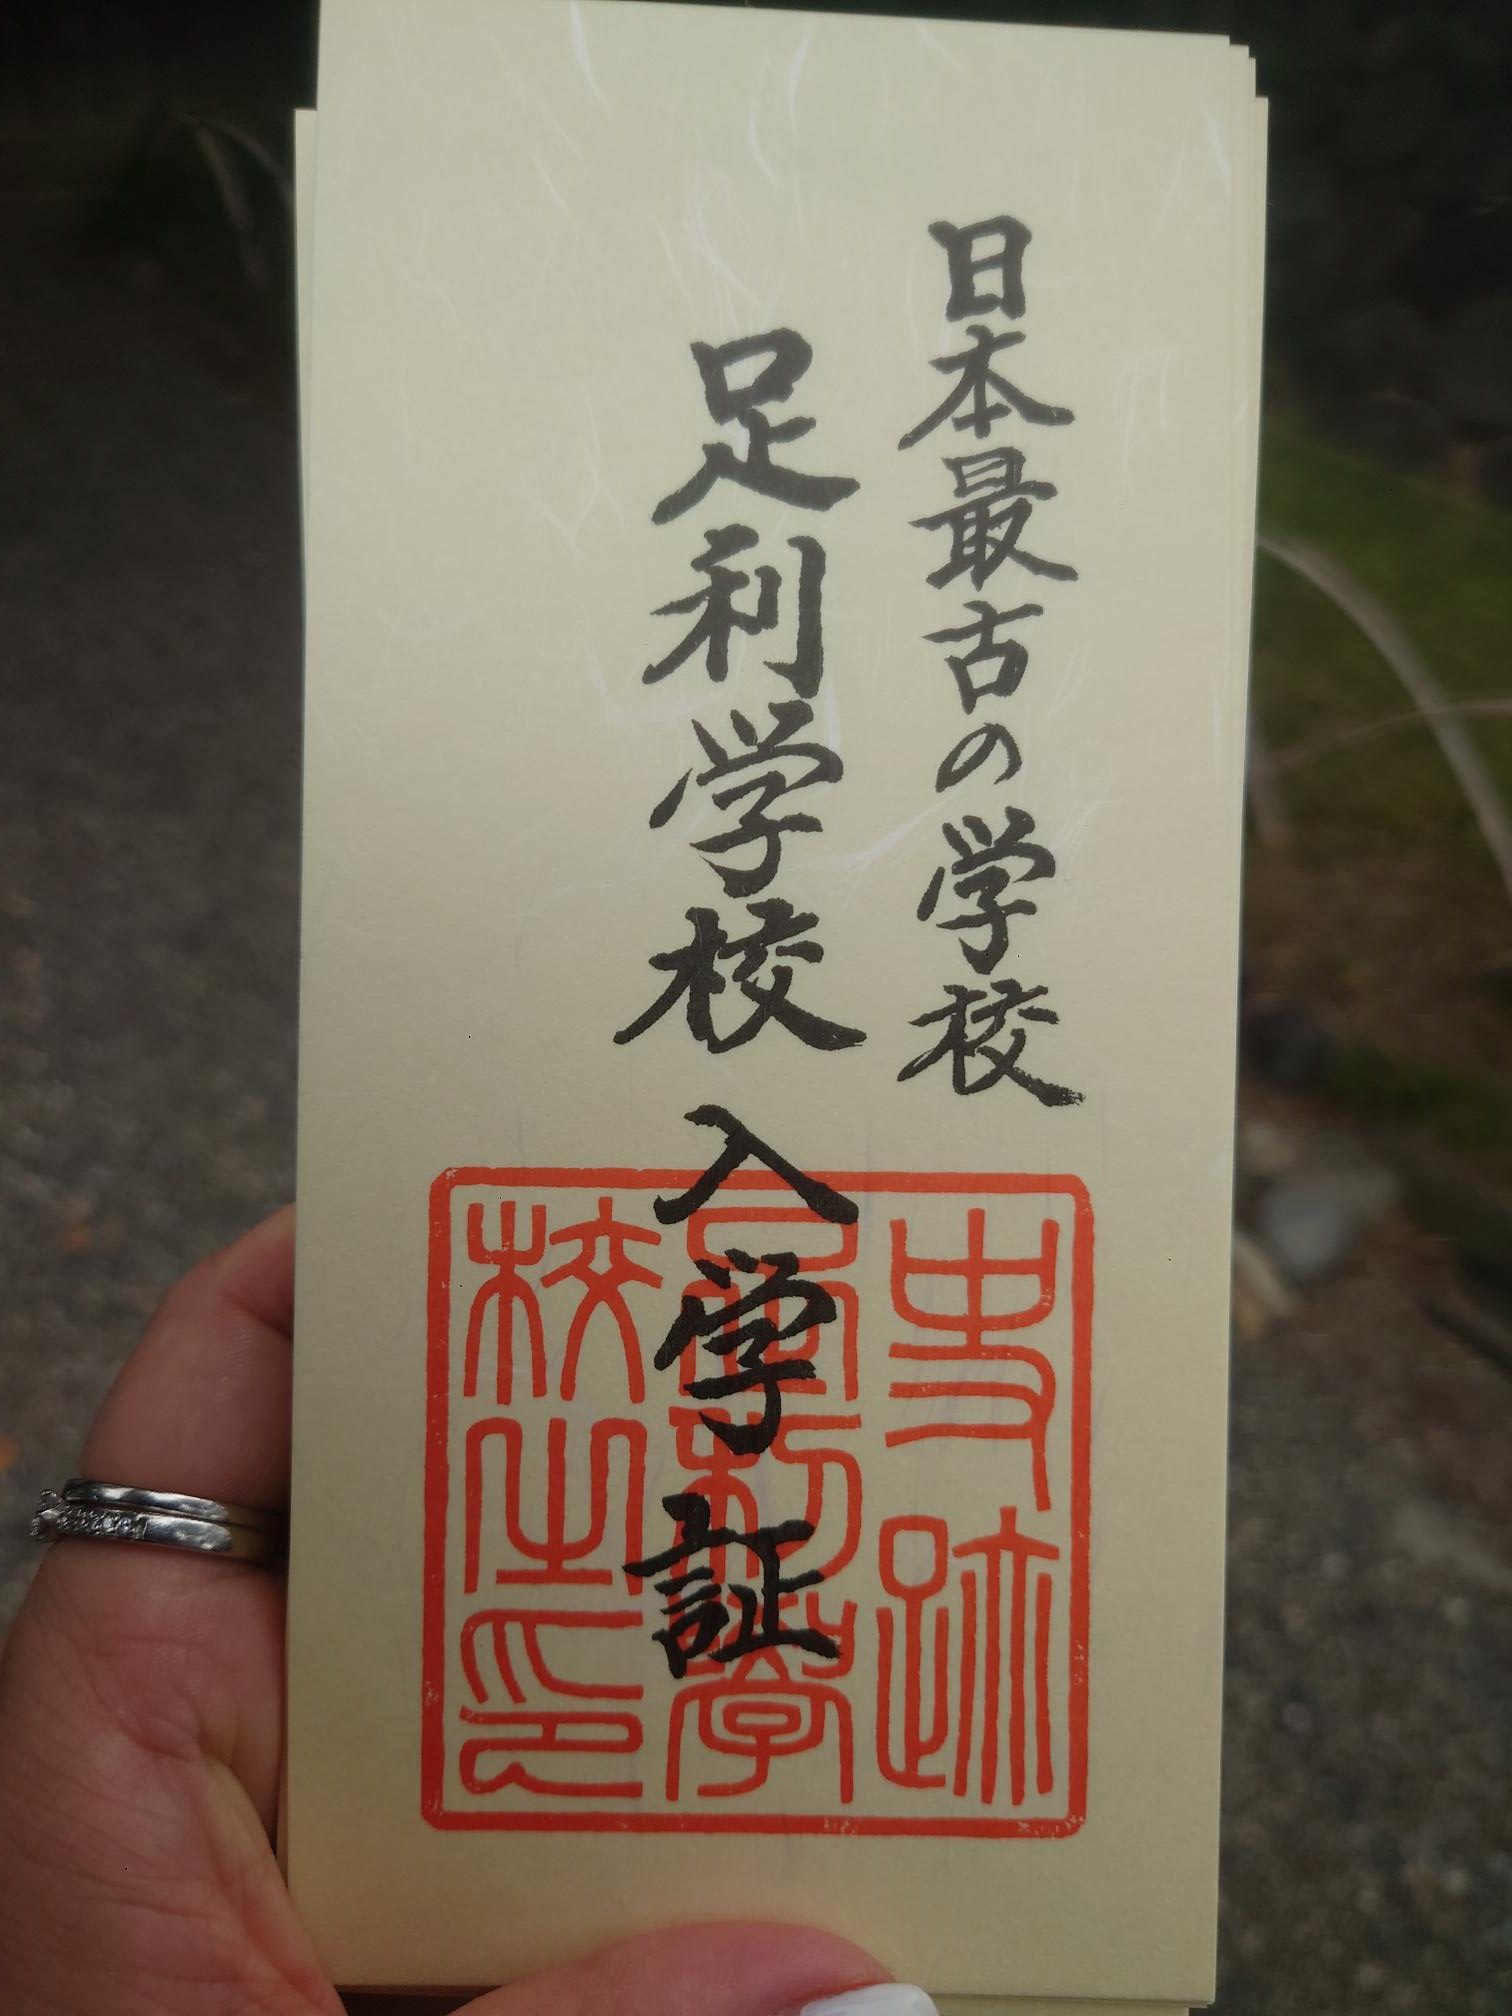 日本最古の学校
足利学校 入学証
史跡
足利学
校之印